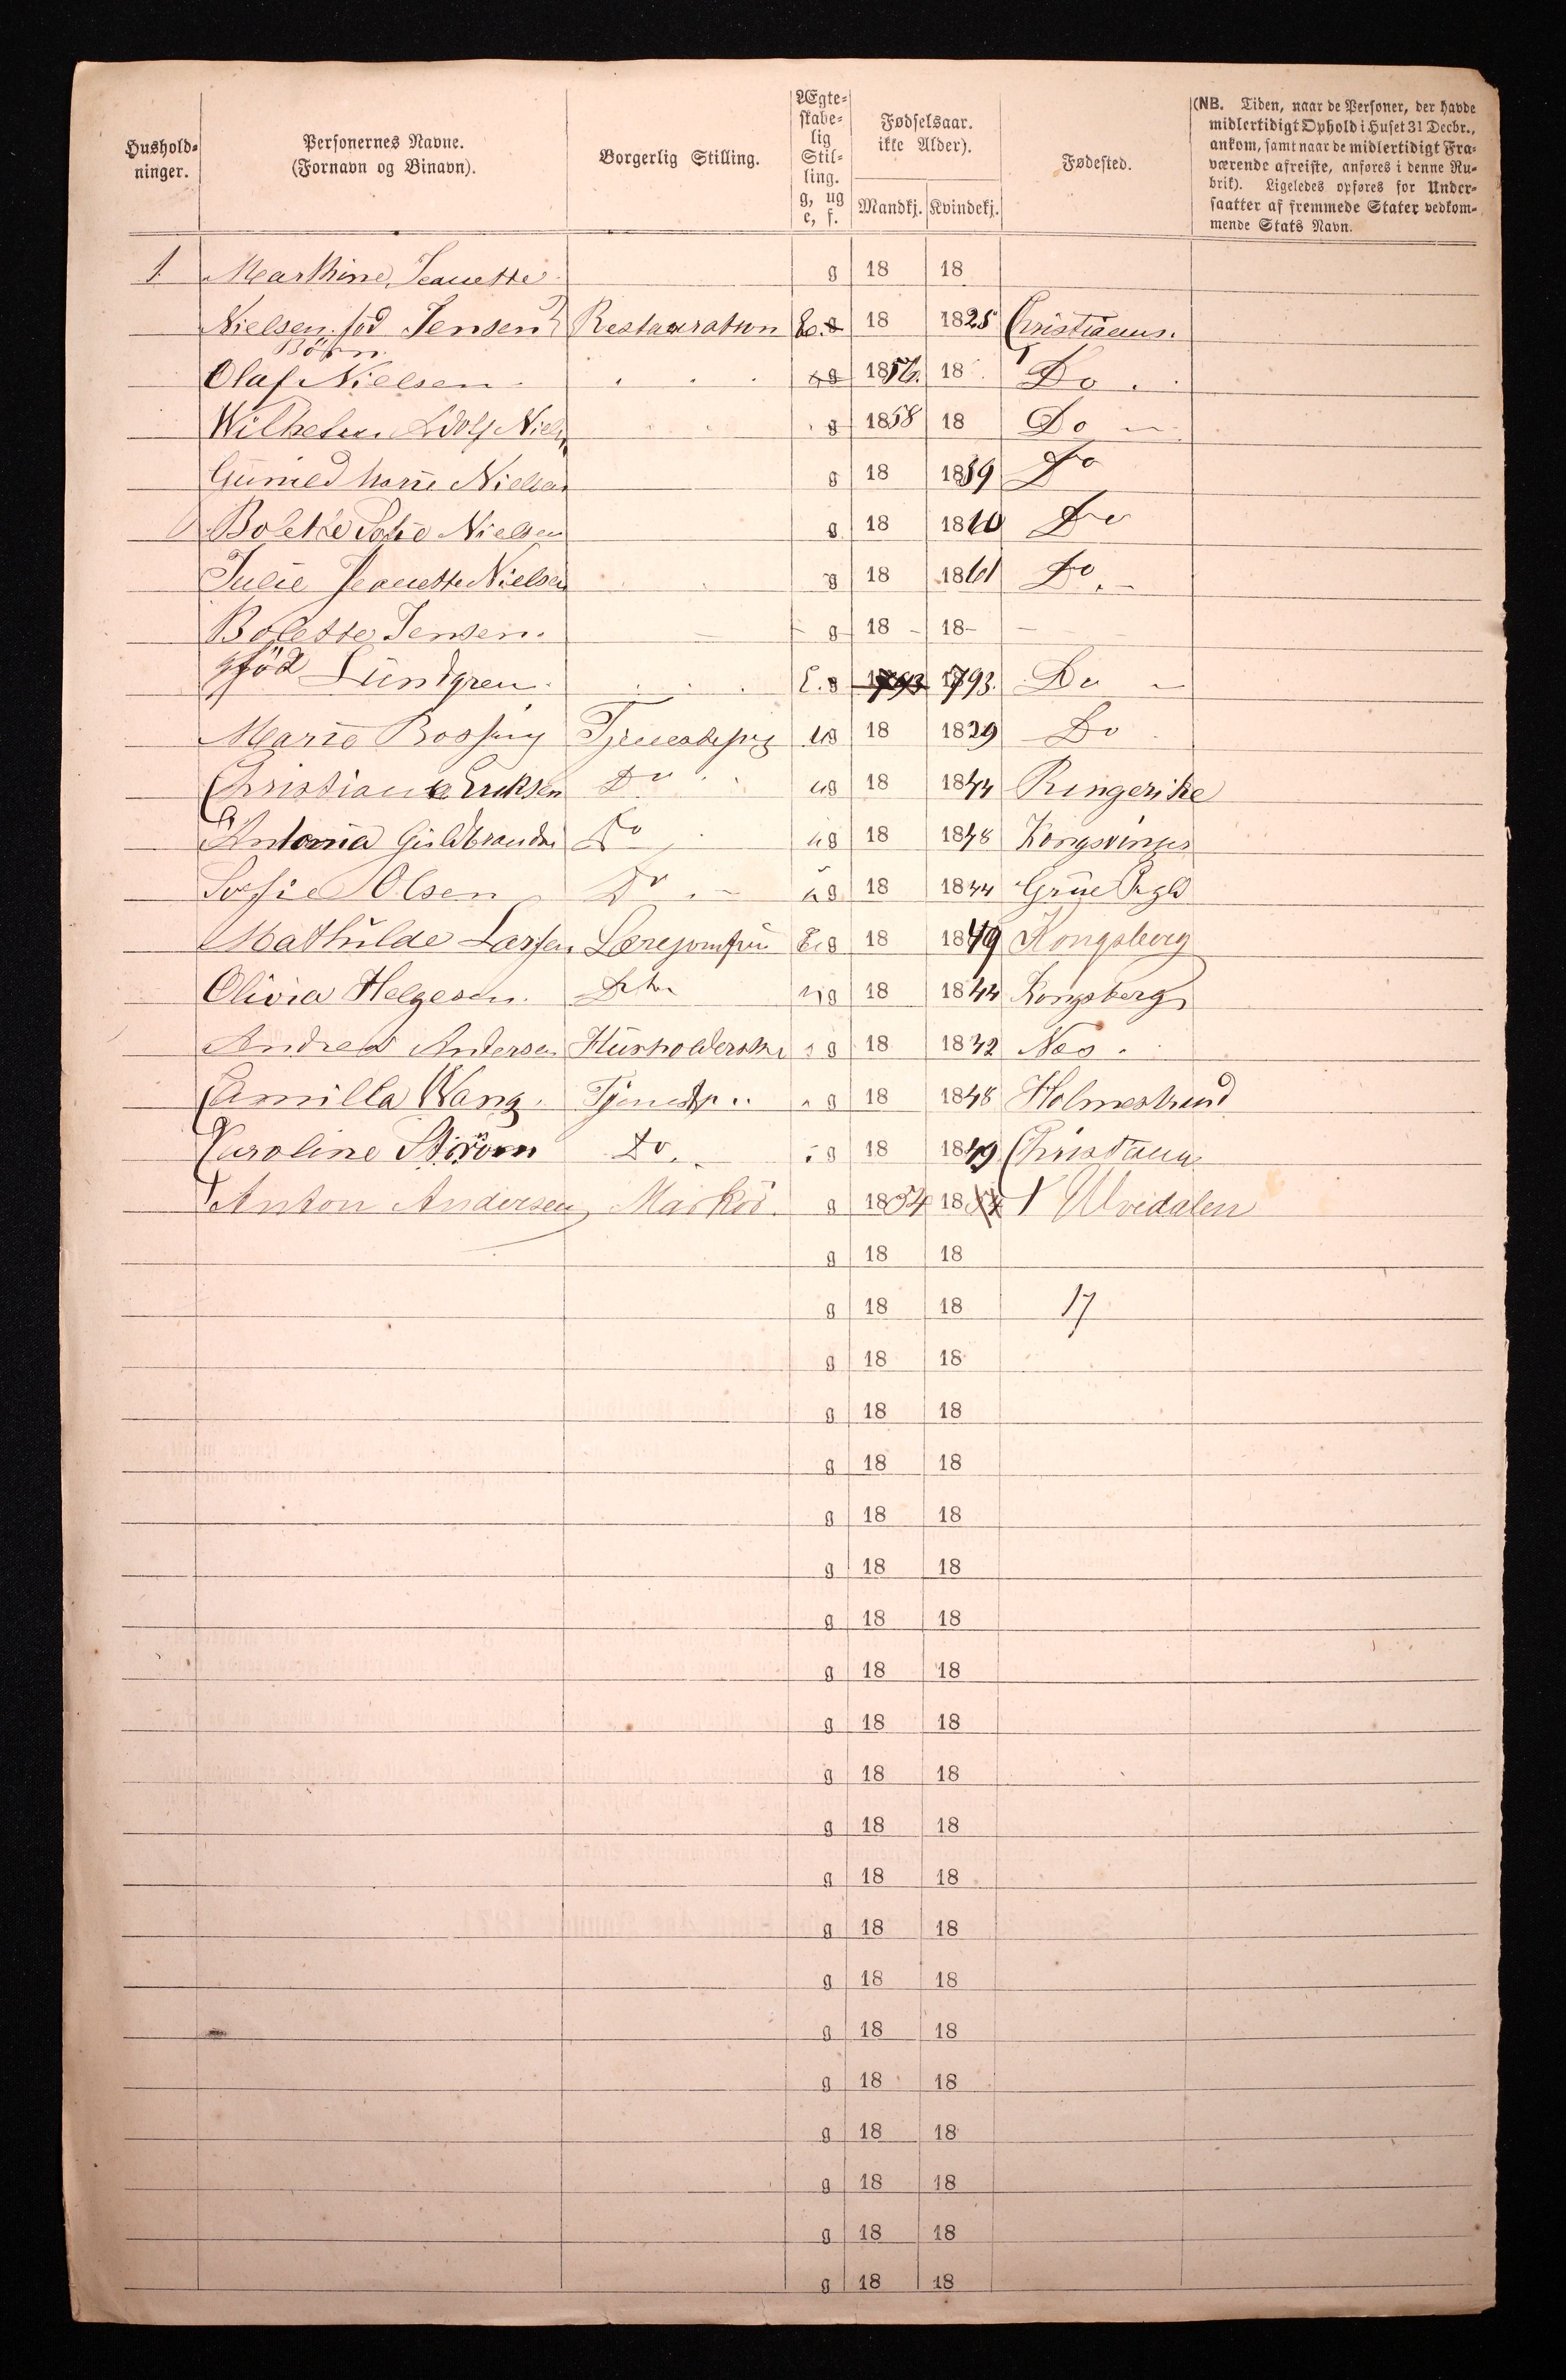 Hushold-
ninger.
Personernes Navne.
(Fornavn og Binavn).
Borgerlig Stilling.
Ægte-
skabe-
lig
Stil-
ling.
g, ug
e, f.
Fødselsaar.
ikke Alder).
Mandkj. Kvindekj.
Fødested.
(NB. Tiden, naar de Personer, der havde
midlertidigt Ophold i Huset 31 Decbr.,
ankom, samt naar de midlertidigt Fra-
værende afreiste, anføres i denne Ru-
brik). Ligeledes opføres for Under-
saatter af fremmede Stater vedkom-
mende Stats Navn.
1 Marthine Jeanette g 18 18
Nielsen föd Jensen Restauration E. g 18 1825 Christiania.
Börn
Olaf Nielsen g 1856. 18 Do
Wilhelm Adolf Niels g 1858 18 Do
Marie Nielsen g 18 1859 Do
Bolette Sofie Nielsen g 18 1860 Do
Julie Jeanette Nielsen g 18 1861 Do
Bolette Jensen. g 18 18
föd Lundgren E. g 1793 1793. Do
Marie ug 18 1829 Do
Christiane Eriksen Do ug 18 1844 Ringerike
Antonia Guldbrands Do ug 18 1848 Kongsvinger
Sofie Olsen Do ug 18 1844 Grue
Mathilde Larsen Lærejomfru g 18 1849 Kongsberg
Olivia Helgesen. Dto ug 18 1844 Kongsberg
Andrea Andersen Husholderske g 18 1832 Nes.
Camilla Wang. g 18 1848 Holmestrand
Karoline Ström Do. g 18 1849 Christiania
Anton Andersen Markör. g 1854 18 Uvedalen
g 18 18
g 18 18 17
g 18 18
g 18 18
g 18 18
g 18 18
g 18 18
g 18 18
g 18 18
g 18 18
g 18 18
g 18 18
g 18 18
g 18 18
g 18 18
g 18 18
g 18 18
g 18 18
g 18 18
g 18 18
g 18 18